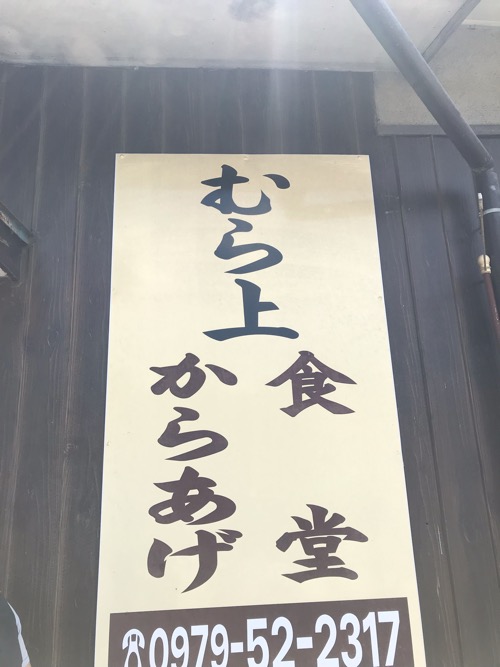 むら上
食堂
からあげ
☎0979-52-2317